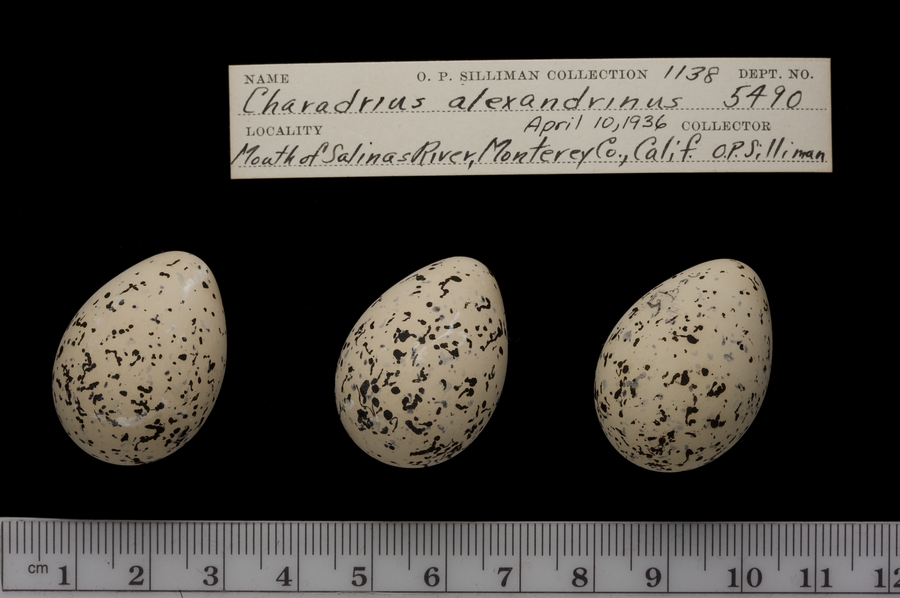 NAME O. P. SILLIMAN COLLECTION 1138 DEPT. NO.
Charadrius alexandrinus 5490
LOCALITY April 10, 1936 COLLECTOR
Mouth of Salinas River, Monterey Co., Calif. O.P. Silliman
cm 1 2 3 4 5 6 7 8 9 10 11 12